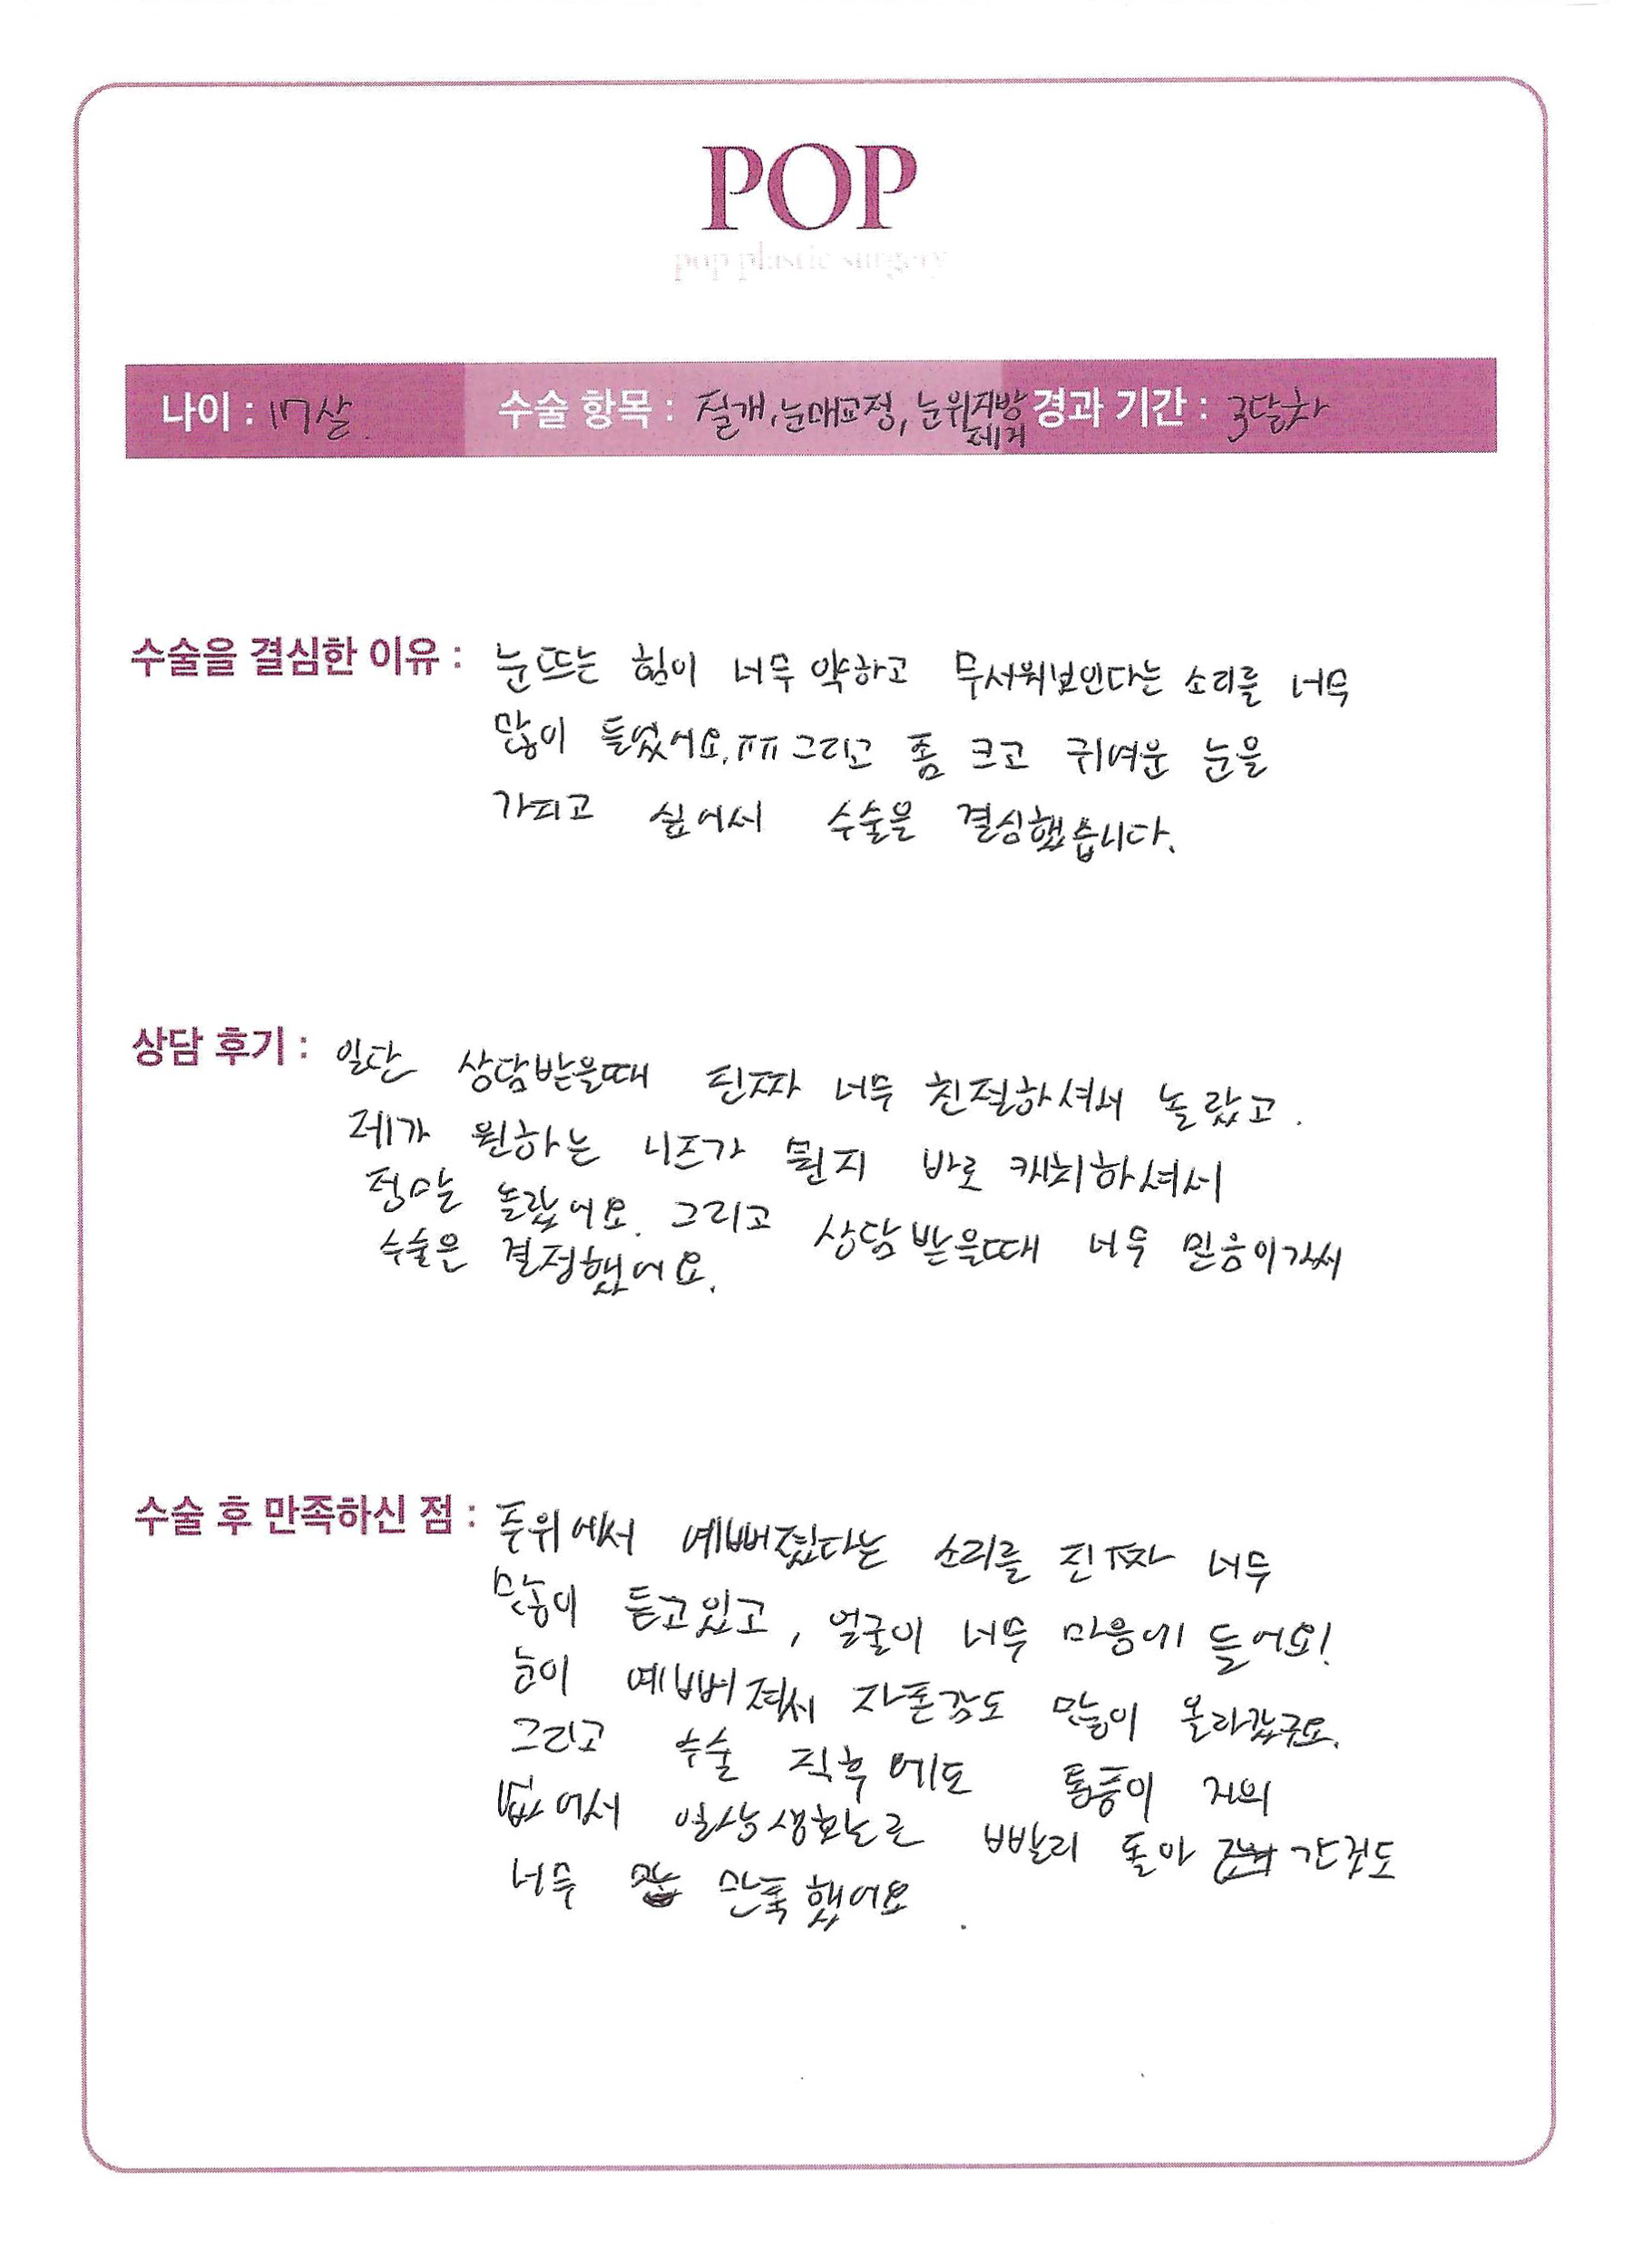 POP
pop plastic surgery
나이 : 17살 수술 항목 : 절개, 눈매교정, 눈위지방제거 경과 기간 : 3달차
수술을 결심한 이유 : 눈뜨는 힘이 너무 약하고 무서워보인다는 소리를 너무
많이 들었어요.ㅠㅠ 그리고 좀 크고 귀여운 눈을
가지고 싶어서 수술을 결심했습니다.
상담 후기 : 일단 상담받을때 진짜 너무 친절하셔서 놀랐고.
제가 원하는 니즈가 뭔지 바로 캐치하셔서
정말 놀랐어요. 그리고 상담받을때 너무 믿음이가서
수술은 결정했어요.
수술 후 만족하신 점 : 주위에서 예뻐졌다는 소리를 진짜 너무
많이 듣고있고, 얼굴이 너무 마음에 들어요!
눈이 예뻐져서 자존감도 많이 올라갔구요.
그리고 수술 직후에도 통증이 거의
없어서 일상생활로 빨리 돌아 간것도
너무 만족했어요.